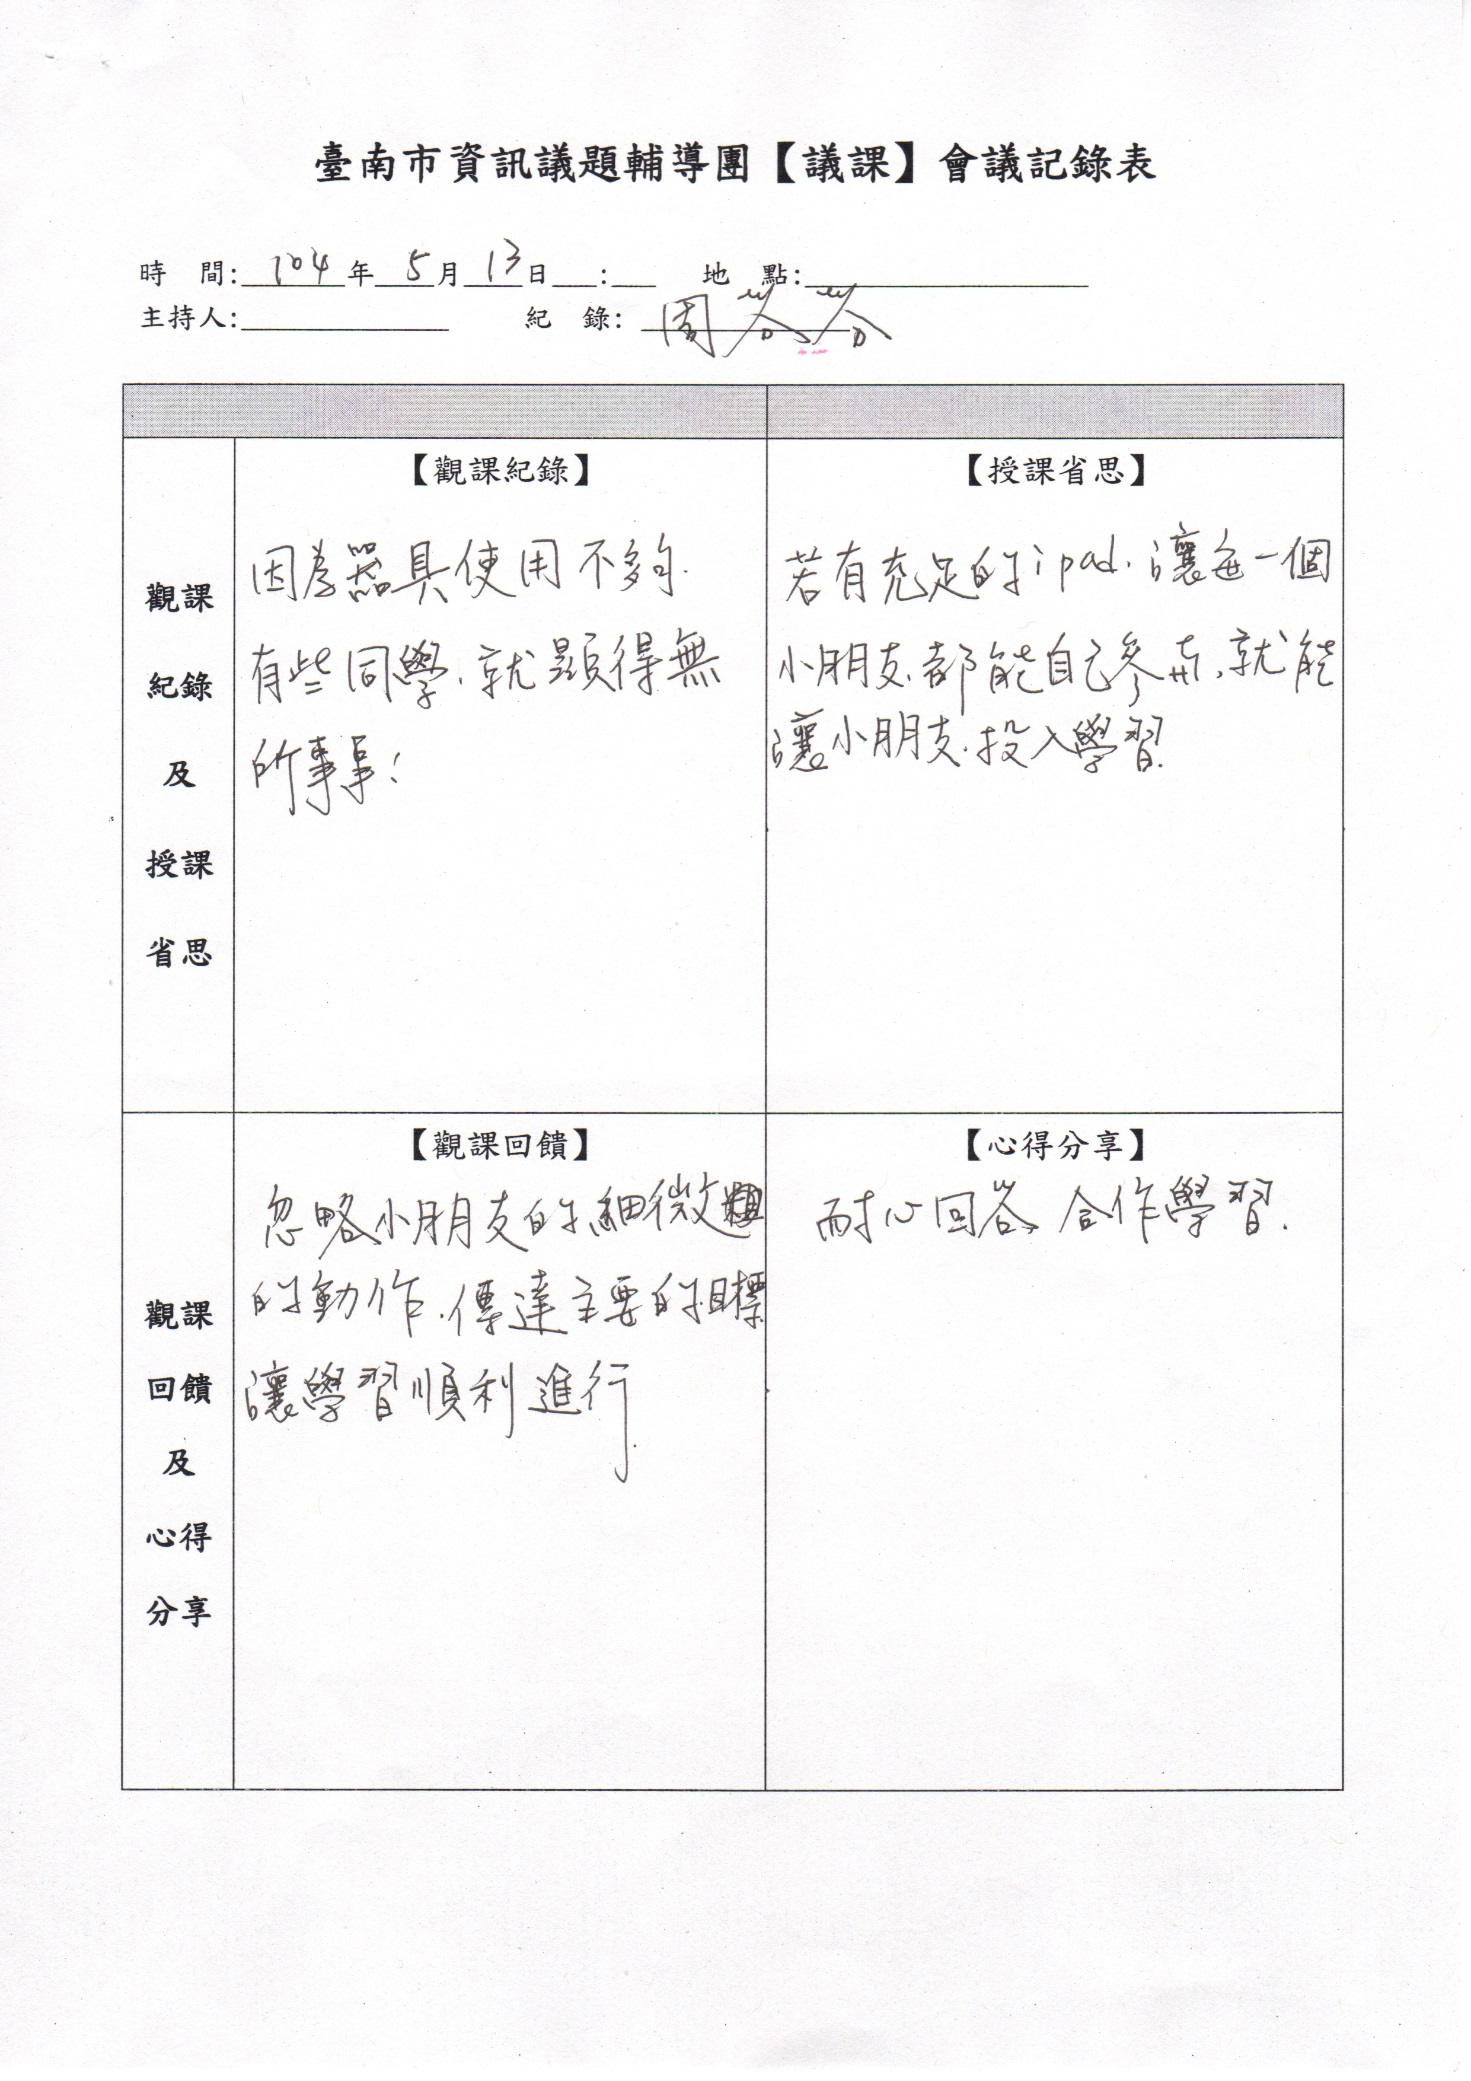 臺南市資訊議題輔導團【議課】會議記錄表
時 間:104年5月13日___:___ 地 點:
主持人: 紀 錄:周
【觀課紀錄】
【授課省思】
觀課
紀錄
及
授課
省思
因為器具使用不夠.
有些同學.就顯得無
所事事!
若有充足的ipad.讓每一個
小朋友.都能自己參與,就能
讓小朋友.投入學習.
【觀課回饋】
【心得分享】
觀課
回饋
及
心得
分享
忽略小朋友的細微
的動作.傳達主要的目標
讓學習順利進行.
耐心回答 合作學習.